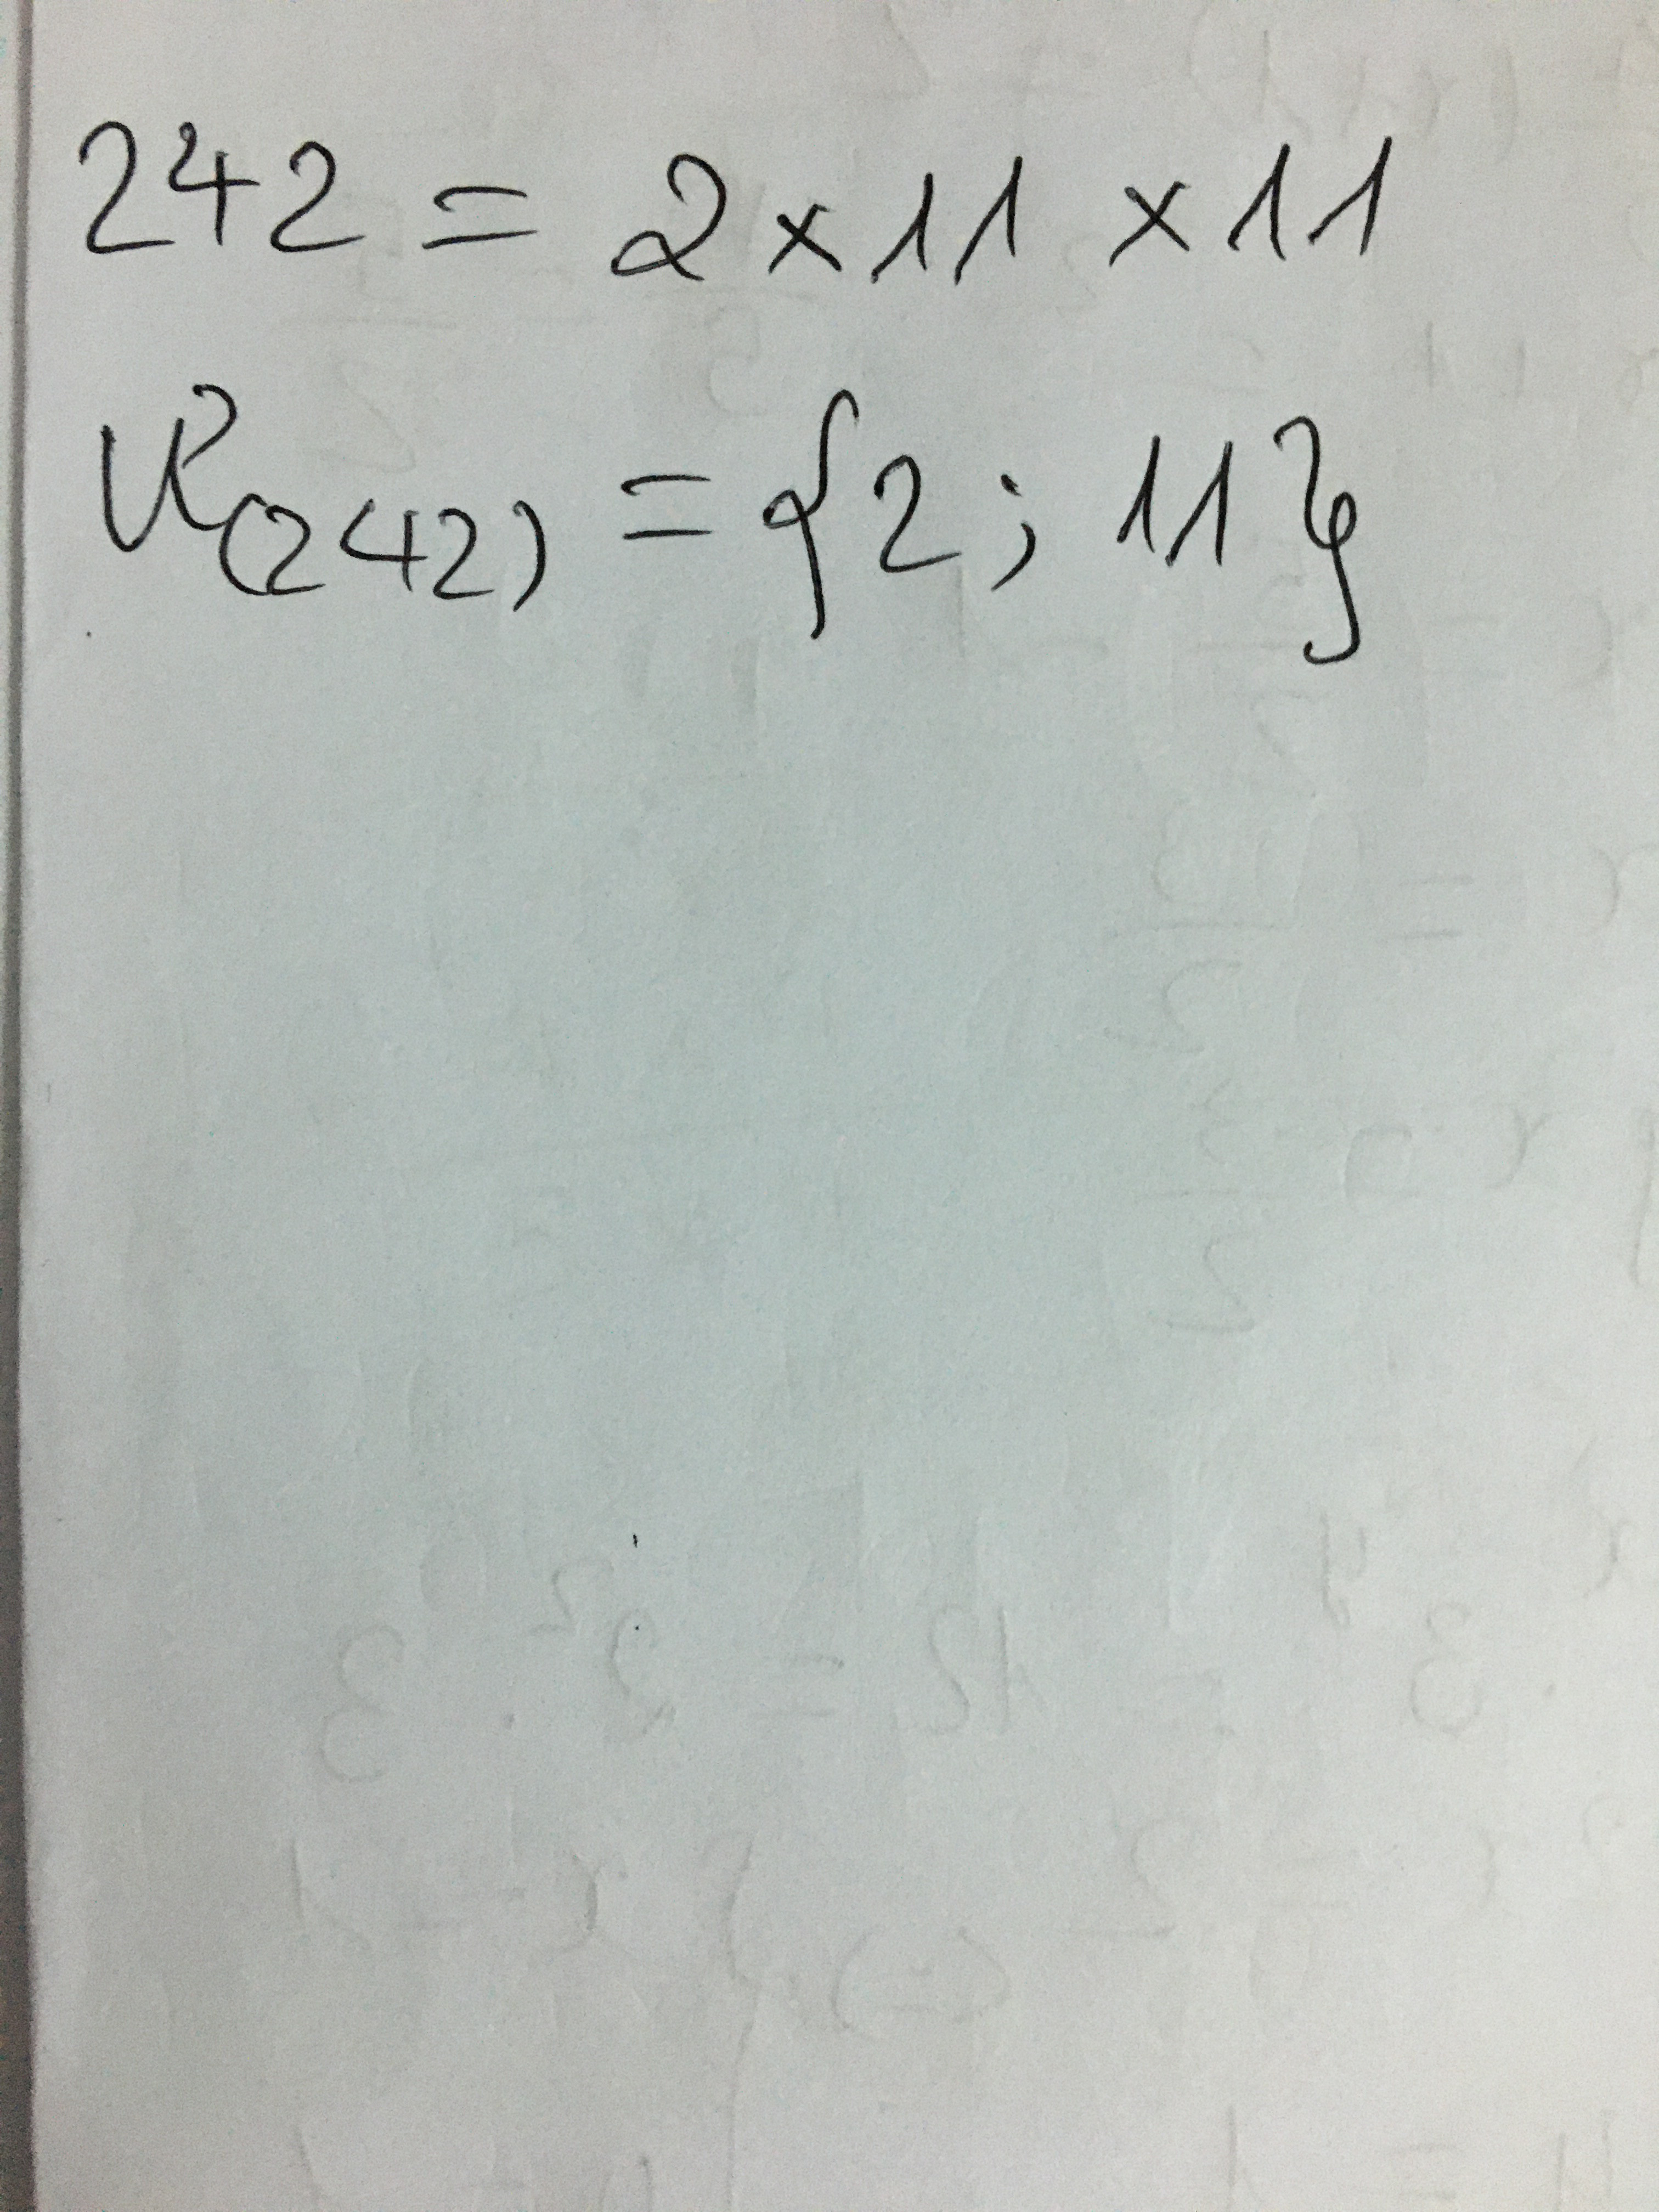 242 = 2 x 11 x 11
Ư(242) = {2; 11}